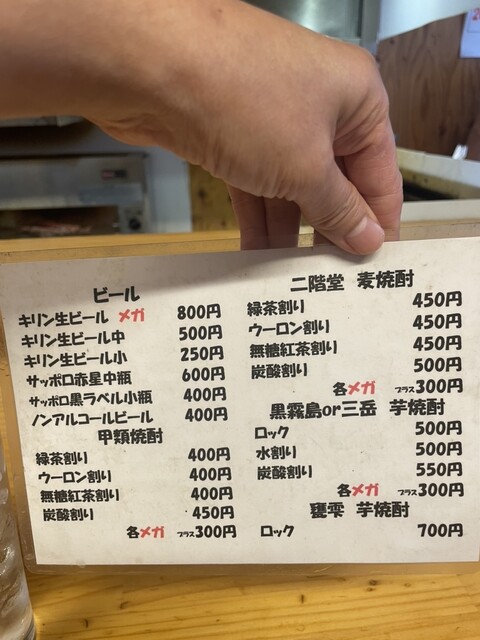 ビール
キリン生ビール メガ 800円
キリン生ビール中 500円
キリン生ビール小 250円
サッポロ赤星中瓶 600円
サッポロ黒ラベル小瓶 400円
ノンアルコールビール 400円
甲類焼酎
緑茶割り 400円
ウーロン割り 400円
無糖紅茶割り 400円
炭酸割り 450円
各メガ プラス300円
二階堂 麦焼酎
緑茶割り 450円
ウーロン割り 450円
無糖紅茶割り 450円
炭酸割り 500円
各メガ プラス300円
黒霧島or三岳 芋焼酎
ロック 500円
水割り 500円
炭酸割り 550円
各メガ プラス300円
甕雫 芋焼酎
ロック 700円